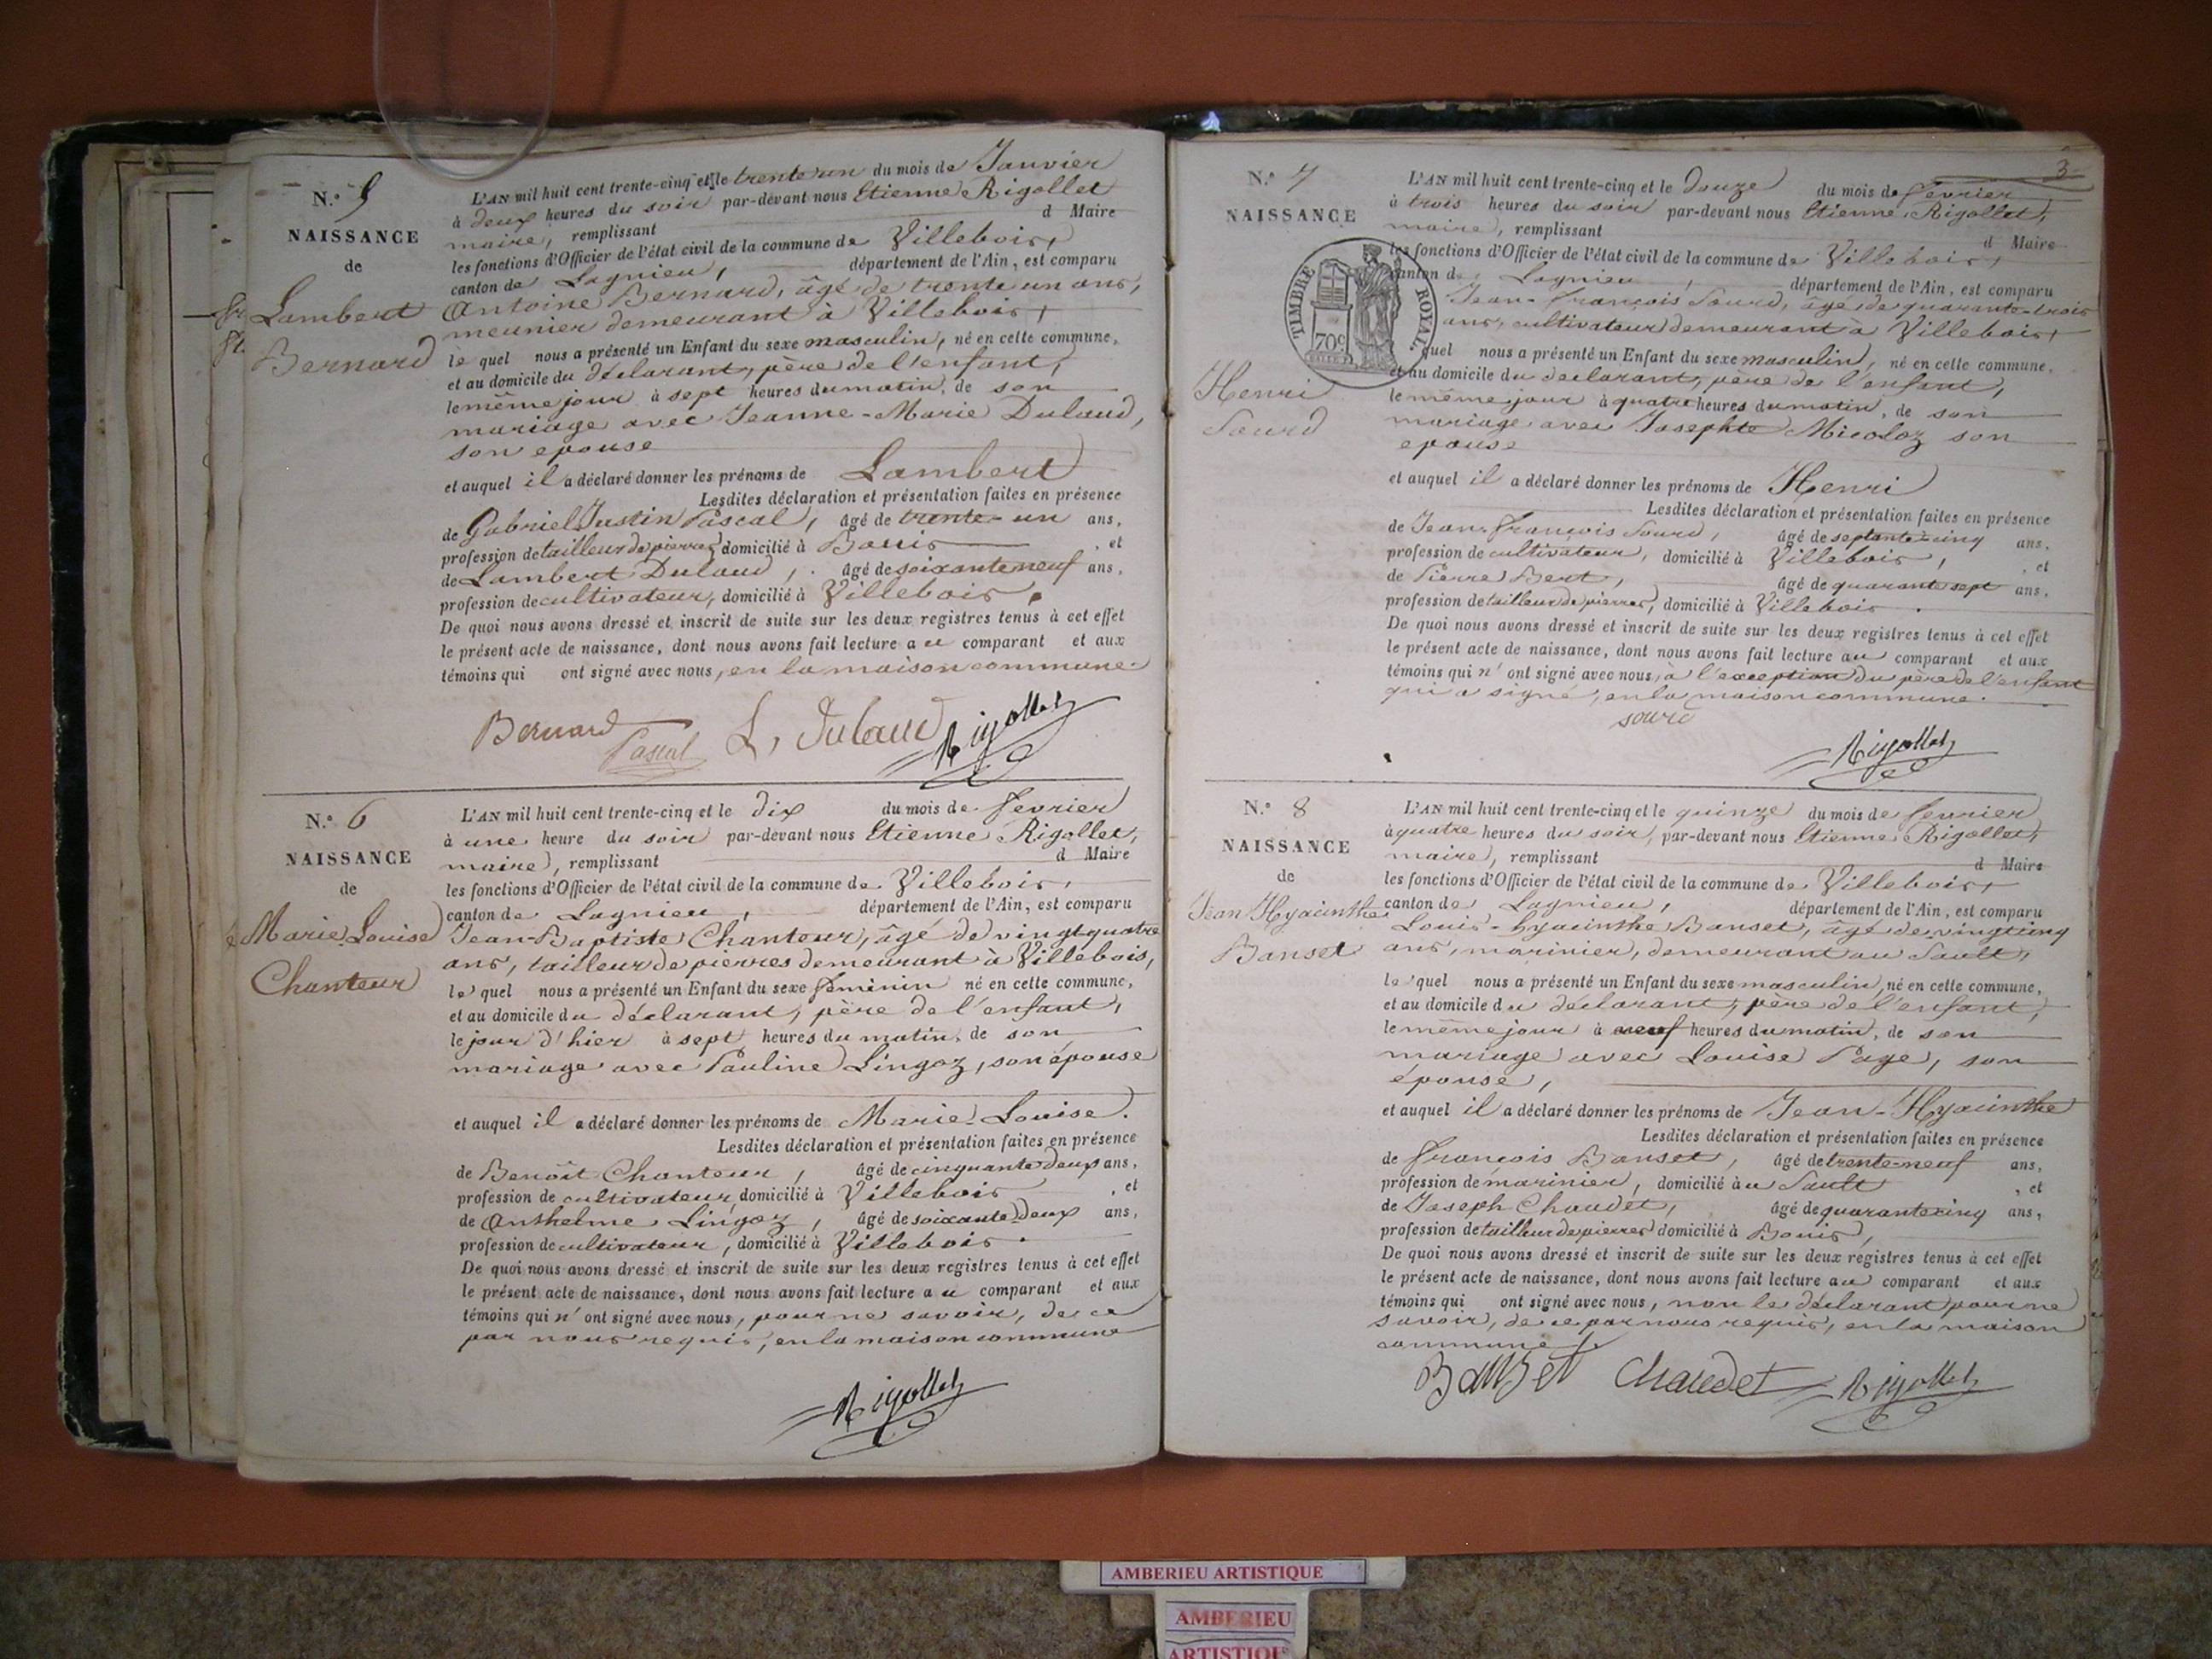 N.° 5
NAISSANCE
de
Lambert
Bernard
L'AN mil huit cent trente-cinq et le trente un du mois de Janvier
à deux heures du soir par-devant nous Etienne Rigollet
maire, remplissant d Maire
les fonctions d'Officier de l'état civil de la commune de Villebois,
canton de Lagnieu, département de l'Ain, est comparu
Antoine Bernard, âgé de trente un ans,
meunier demeurant à Villebois,
le quel nous a présenté un Enfant du sexe masculin, né en cette commune,
et au domicile du déclarant, père de l'enfant,
le même jour à sept heures du matin, de son
mariage avec Jeanne-Marie Dulaud,
son epouse
et auquel il a déclaré donner les prénoms de Lambert
Lesdites déclaration et présentation faites en présence
de Gabriel Justin Pascal, âgé de trente-un ans,
profession de tailleur de pierres, domicilié à Bouis, et
de Lambert Dulaud, âgé de soixante neuf ans,
profession de cultivateur, domicilié à Villebois.
De quoi nous avons dressé et inscrit de suite sur les deux registres tenus à cet effet
le présent acte de naissance, dont nous avons fait lecture au comparant et aux
témoins qui ont signé avec nous, en la maison commune.
Bernard Pascal L, Dulaud Rigollet
N.° 6
NAISSANCE
de
Marie Louise
Chanteur
L'AN mil huit cent trente-cinq et le dix du mois de fevrier
à une heure du soir par-devant nous Etienne Rigollet,
maire, remplissant d Maire
les fonctions d'Officier de l'état civil de la commune de Villebois,
canton de Lagnieu, département de l'Ain, est comparu
Jean-Baptiste Chanteur, âgé de vingt quatre
ans, tailleur de pierres demeurant à Villebois,
le quel nous a présenté un Enfant du sexe féminin né en cette commune,
et au domicile du déclarant, père de l'enfant,
le jour d'hier à sept heures du matin, de son
mariage avec Pauline Lingoz, son épouse
et auquel il a déclaré donner les prénoms de Marie Louise.
Lesdites déclaration et présentation faites en présence
de Benoît Chanteur, âgé de cinquante deux ans,
profession de cultivateur, domicilié à Villebois, et
de Anthelme Lingoz, âgé de soixante deux ans,
profession de cultivateur, domicilié à Villebois.
De quoi nous avons dressé et inscrit de suite sur les deux registres tenus à cet effet
le présent acte de naissance, dont nous avons fait lecture au comparant et aux
témoins qui n'ont signé avec nous, pour ne savoir, de ce
par nous requis, en la maison commune
Rigollet
3
N.° 7
NAISSANCE
Henri
Sourd
TIMBRE ROYAL
70c
L'AN mil huit cent trente-cinq et le douze du mois de fevrier
à trois heures du soir par-devant nous Etienne Rigollet,
maire, remplissant d Maire
les fonctions d'Officier de l'état civil de la commune de Villebois,
canton de Lagnieu, département de l'Ain, est comparu
Jean-françois Sourd, âgé de quarante-trois
ans, cultivateur demeurant à Villebois,
quel nous a présenté un Enfant du sexe masculin, né en cette commune,
et au domicile du declarant, père de l'enfant,
le même jour à quatre heures du matin, de son
mariage avec Josephte Micoloz son
epouse
et auquel il a déclaré donner les prénoms de Henri
Lesdites déclaration et présentation faites en présence
de Jean-françois Sourd, âgé de septante-cinq ans,
profession de cultivateur, domicilié à Villebois, et
de Pierre Bert, âgé de quarante sept ans,
profession de tailleur de pierres, domicilié à Villebois.
De quoi nous avons dressé et inscrit de suite sur les deux registres tenus à cet effet
le présent acte de naissance, dont nous avons fait lecture au comparant et aux
témoins qui n'ont signé avec nous, à l'exception du père de l'enfant
qui a signé, en la maison commune.
sourd
Rigollet
N.° 8
NAISSANCE
de
Jean Hyacinthe
Banset
L'AN mil huit cent trente-cinq et le quinze du mois de fevrier
à quatre heures du soir, par-devant nous Etienne Rigollet,
maire, remplissant d Maire
les fonctions d'Officier de l'état civil de la commune de Villebois,
canton de Lagnieu, département de l'Ain, est comparu
Louis-hyacinthe Banset, âgé de vingt cinq
ans, marinier, demeurant au Sault,
le quel nous a présenté un Enfant du sexe masculin, né en cette commune,
et au domicile du déclarant, père de l'enfant,
le même jour à neuf heures du matin, de son
mariage avec Louise Page, son
épouse,
et auquel il a déclaré donner les prénoms de Jean-Hyacinthe
Lesdites déclaration et présentation faites en présence
de françois Banset, âgé de trente-neuf ans,
profession de marinier, domicilié au Sault, et
de Joseph Chaudet, âgé de quarante cinq ans,
profession de tailleur de pierres domicilié à Bouis,
De quoi nous avons dressé et inscrit de suite sur les deux registres tenus à cet effet
le présent acte de naissance, dont nous avons fait lecture au comparant et aux
témoins qui ont signé avec nous, non le déclarant pour ne
savoir, de ce par nous requis, en la maison
commune.
Banset Chaudet Rigollet
AMBERIEU ARTISTIQUE
AMBERIEU
ARTISTIQUE